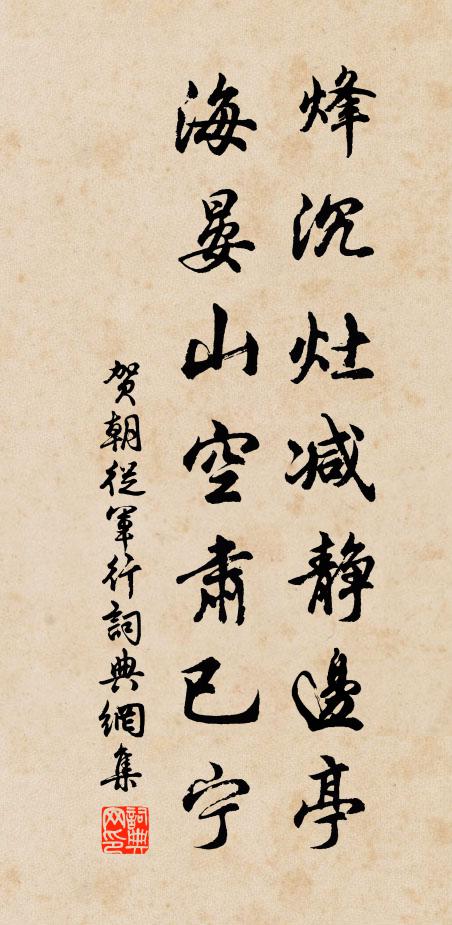 烽沉灶减静邊亭
海晏山空肅已宁
贺朝從軍行詞典網集
詞典網印